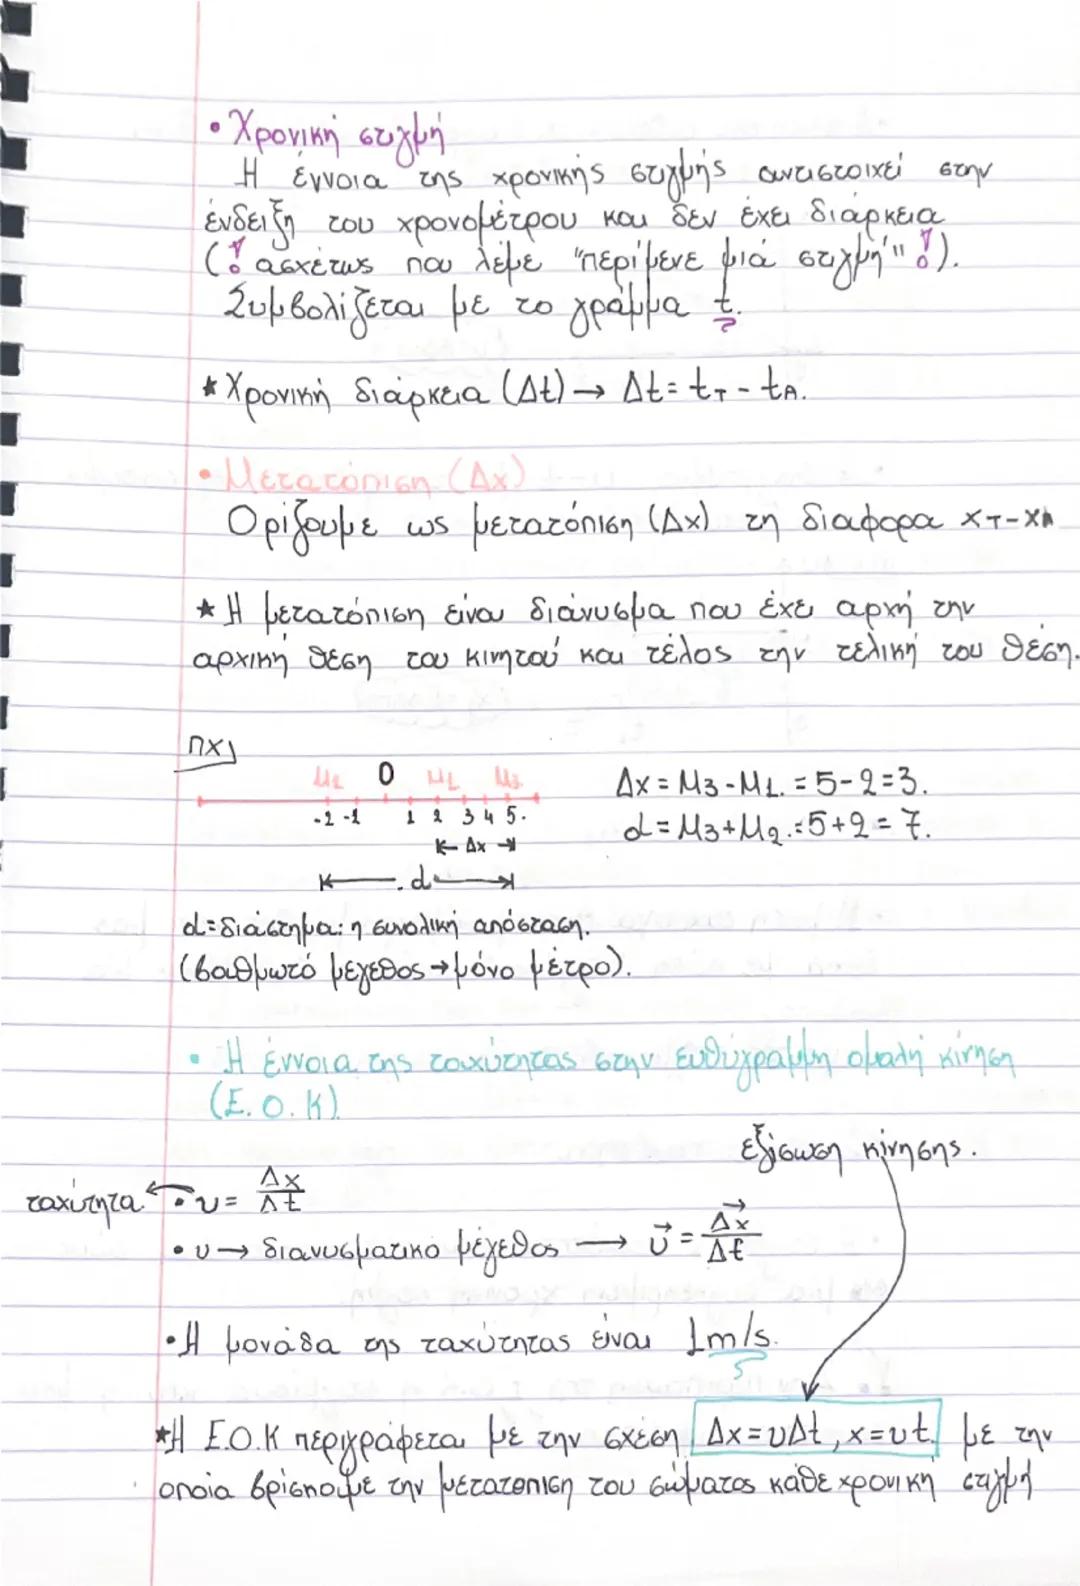 • Χρονική στιγμή
Η έννοια της χρονικής στιγμής αντιστοιχεί στην
ένδειξη του χρονομέτρου και δεν έχει διάρκεια
(! ασχέτως που λέμε "περίμενε μιά στιγμή" !).
Συμβολίζεται με το γράμμα t.
* Χρονική διάρκεια (Δt) → Δt = tT - tA.
• Μετατόπιση (Δx)
Ορίζουμε ως μετατόπιση (Δx) τη διαφορα xT-xA
* Η μετατόπιση είναι διάνυσμα που έχει αρχή την
αρχική θέση του κινητού και τέλος την τελική του θέση.
πχ)
M2 0 M1 M3
-2 -1 1 2 3 4 5.
Δx
d
Δx = M3-M1. = 5-2=3.
d = M3+M2.=5+2=7.
d=διάστημα: η συνολική απόσταση.
(βαθμωτό μέγεθος → μόνο μέτρο).
• Η έννοια της ταχύτητας στην ευθύγραμμη ομαλή κίνηση
(Ε.Ο.Κ)
εξίσωση κίνησης.
ταχύτητα ← • υ = Δx/Δt
• υ → διανυσματικό μέγεθος → υ⃗ = Δx⃗/Δt
• Η μονάδα της ταχύτητας είναι 1m/s.
*Η Ε.Ο.Κ περιγράφεται με την σχέση Δx=υΔt, x=υt. με την
οποία βρίσκουμε την μετατοπιση του σώματος κάθε χρονική στιγμή